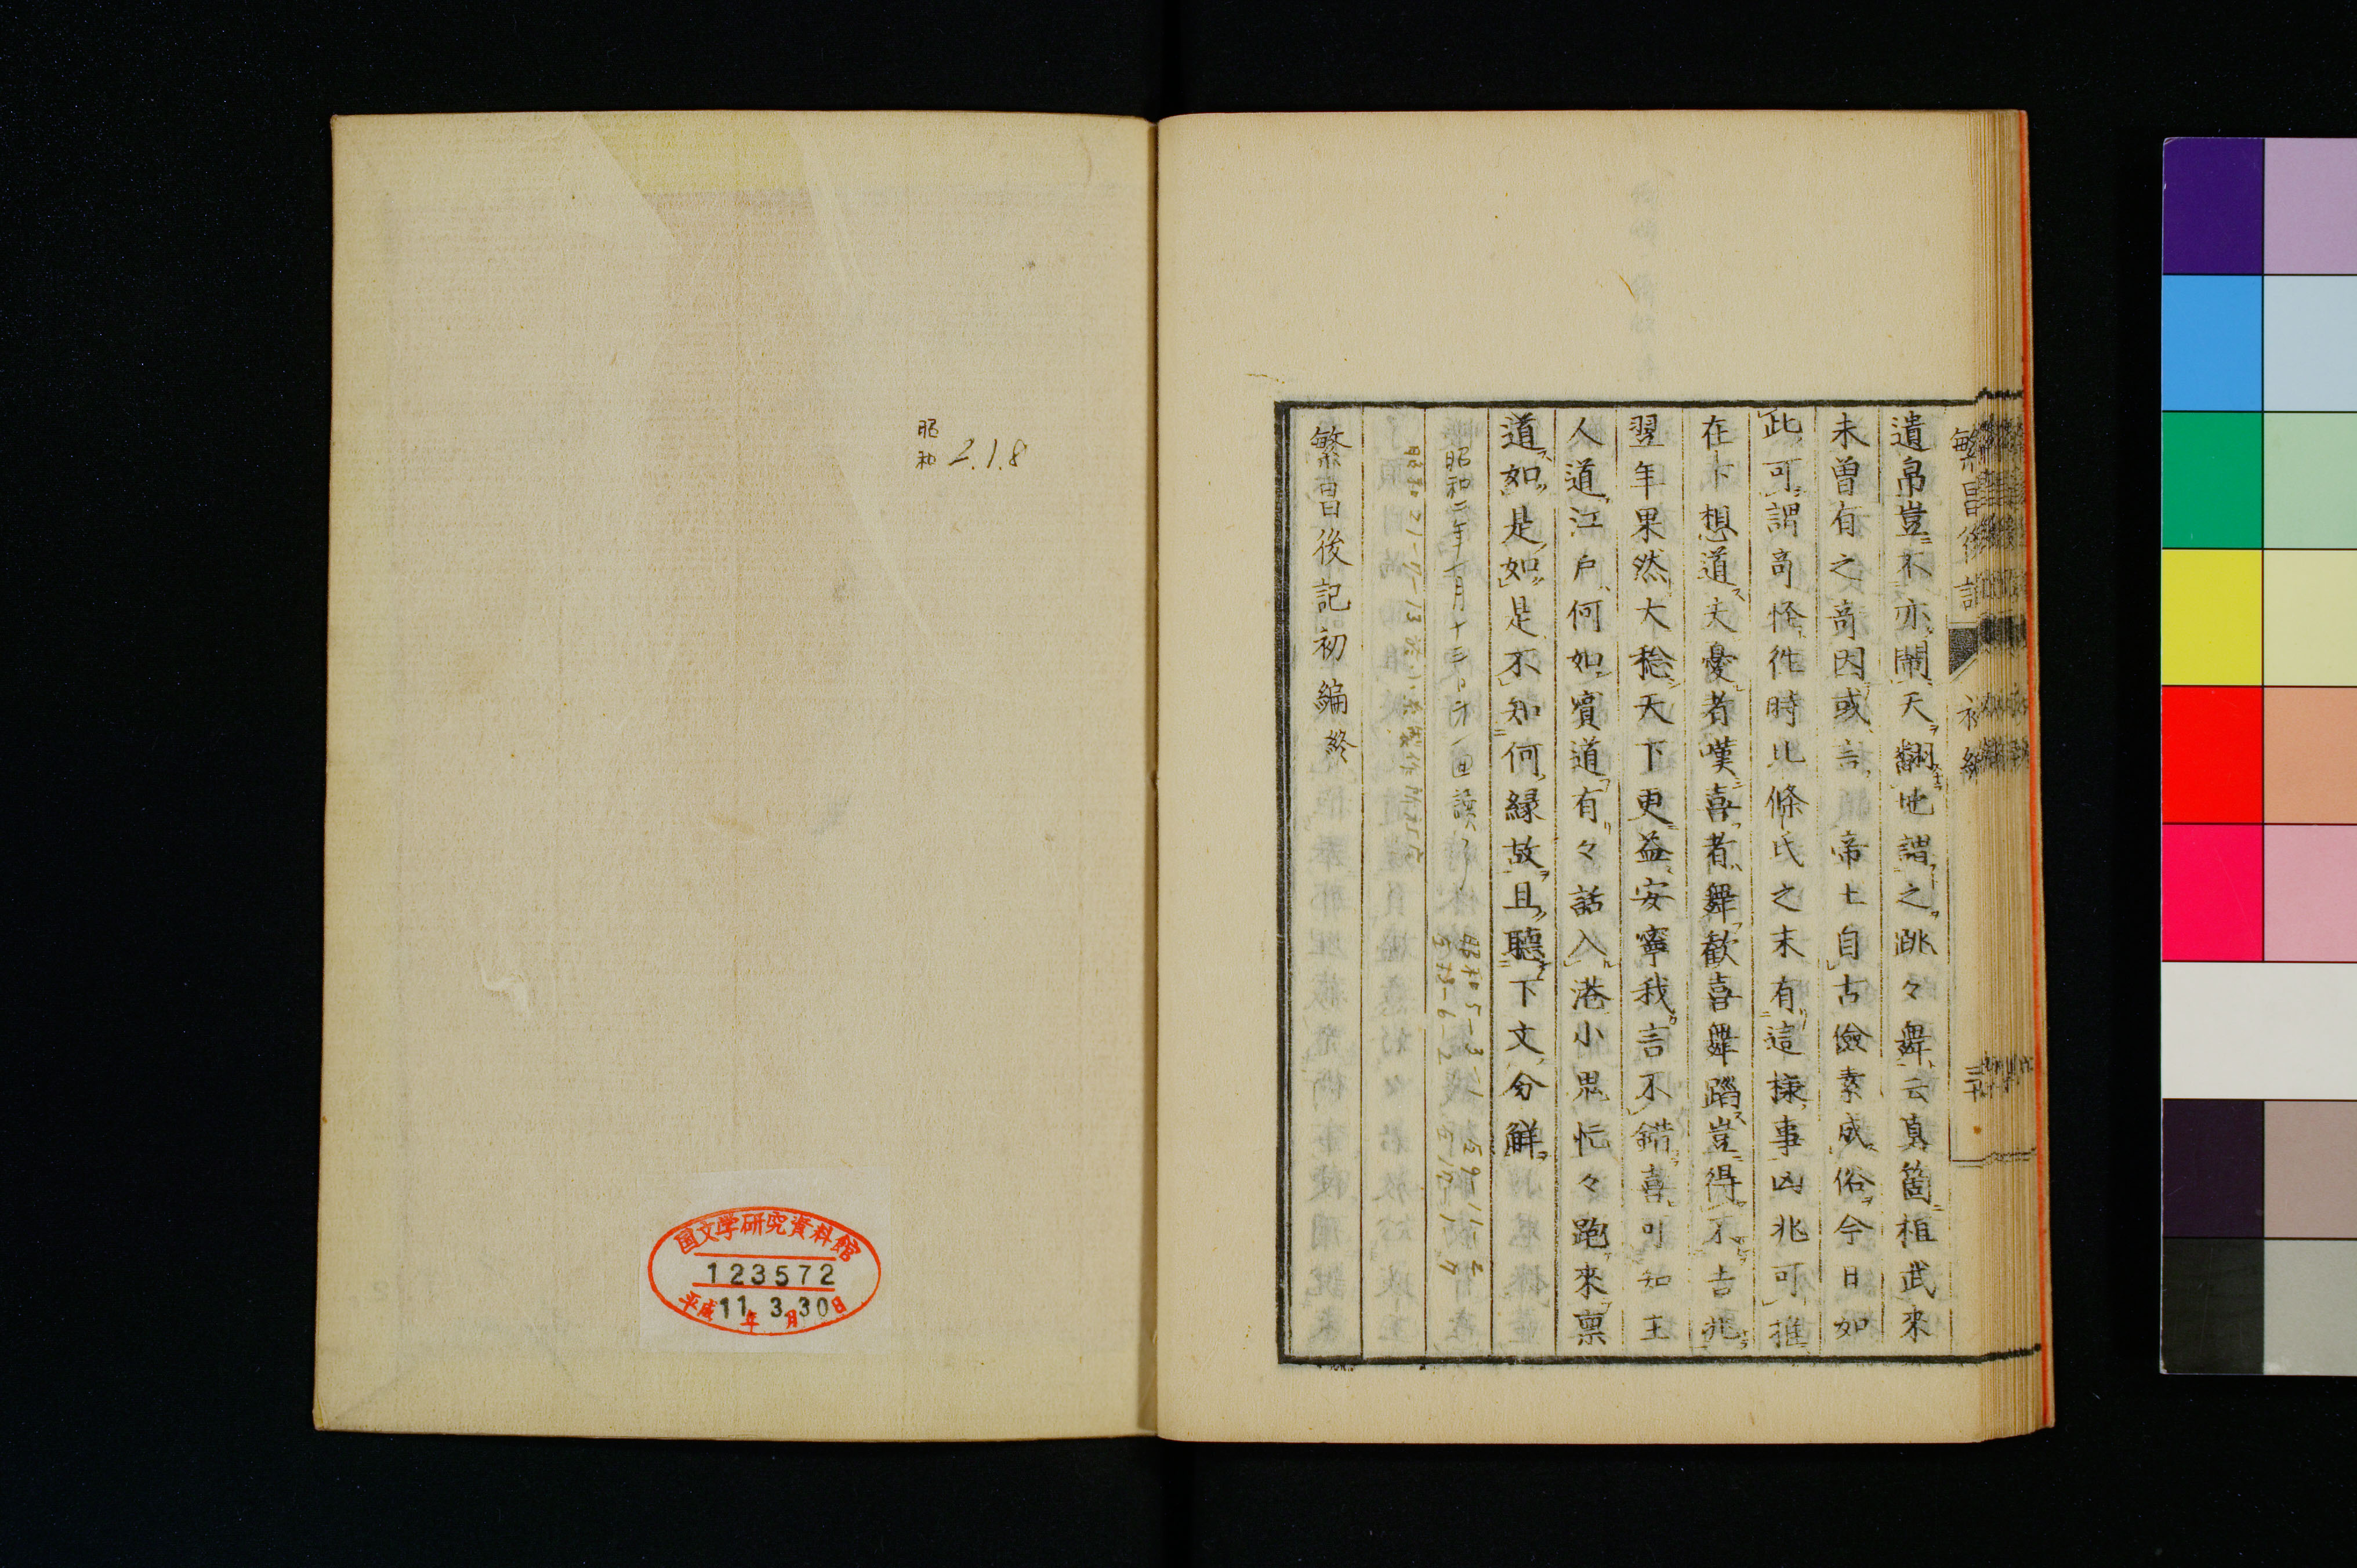 遺帛豈不亦鬧天翻地謂之跳々舞云真箇植武來
未曾有之奇因或言帝土自古儉素成俗今日如
此可謂奇怪徃時北條氏之末有這樣事凶兆可推
在下想道夫憂者嘆喜者舞歓喜舞蹈豈得不吉兆
翌年果然大稔天下更益安寧我言不錯喜可知主
人道江戸何如賓道有々話入港小思忙々跑來禀
道如是如是不知何縁故且聽下文分解
昭和二年一月十三日
繁昌後記初編終
繁昌後記
初編
三十
昭和 2.1.8
国文学研究資料館
123572
平成11年3月30日